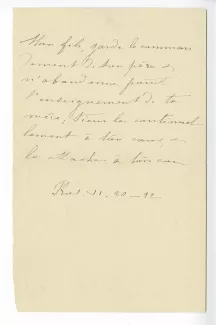 Mon fils, garde le comman
dement de ton père &
n'abandonne point
l'enseignement de ta
mère; Tiens les continuel
lement à ton cœur, &
les attache à ton cou
Prov. VI. 20-22